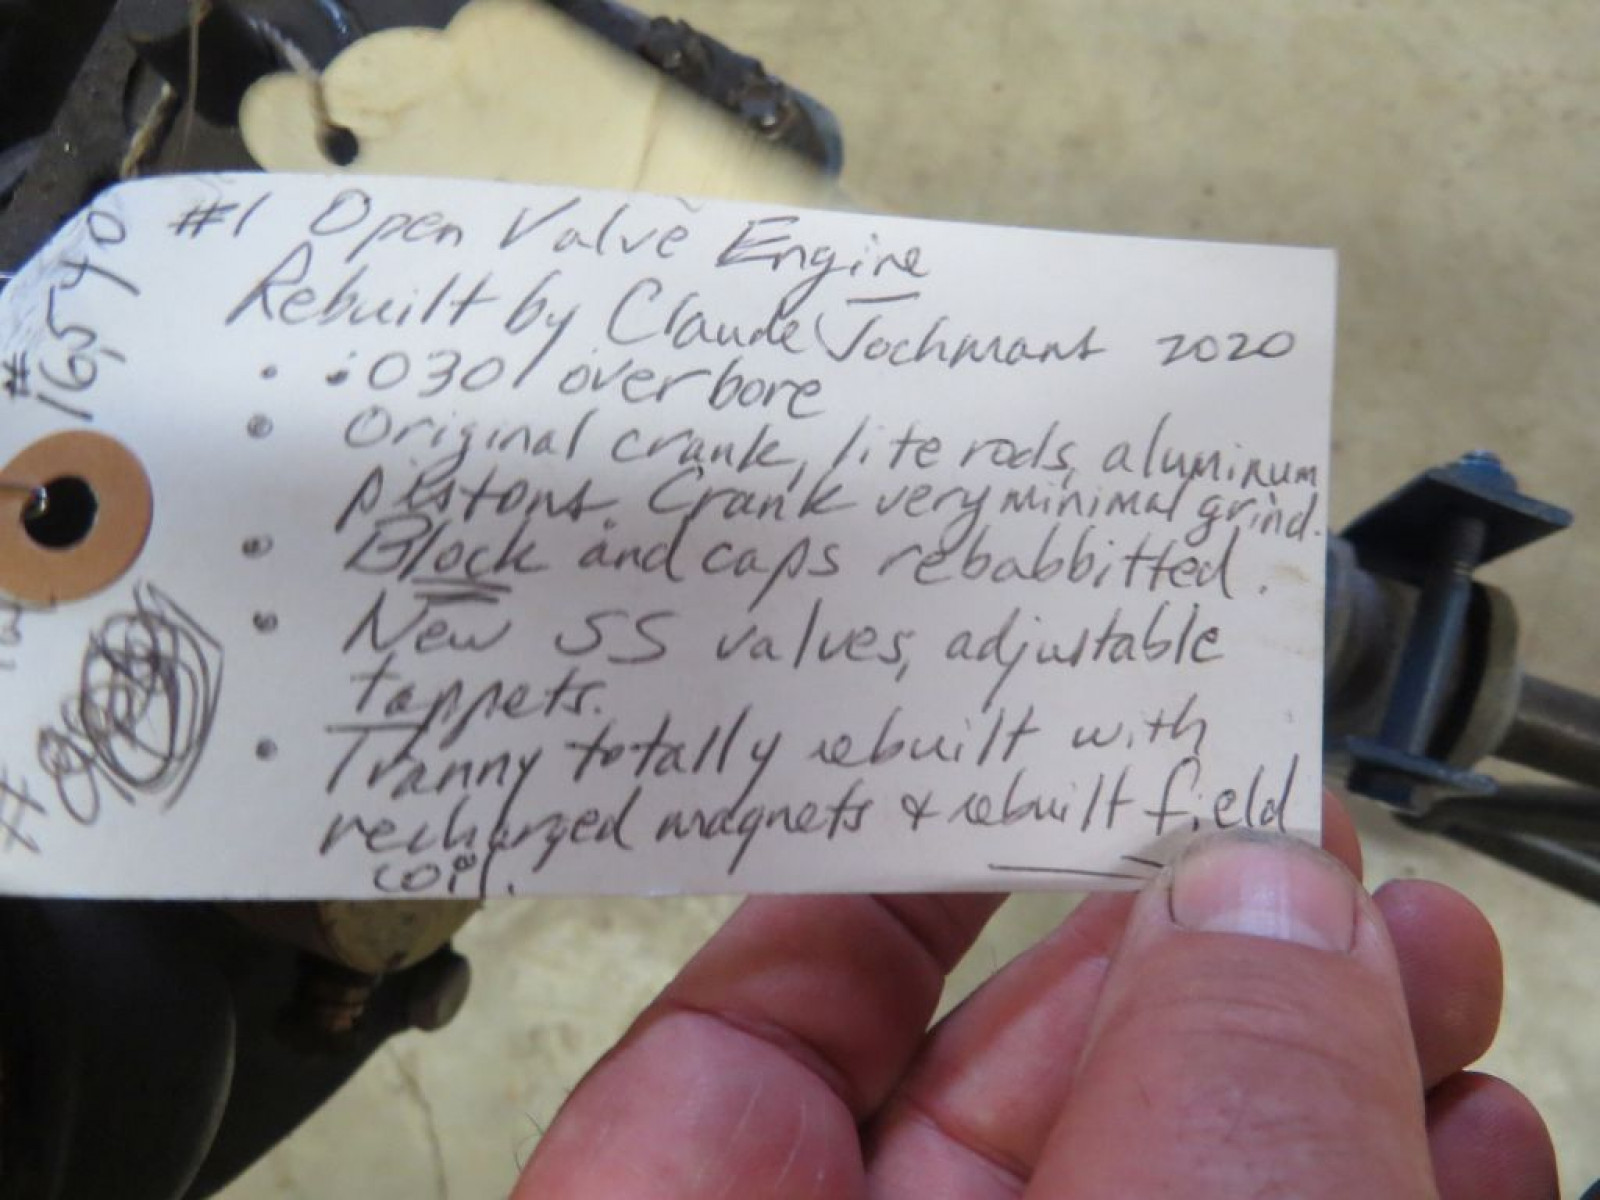 #1 Open Valve Engine
Rebuilt by Claude Jochmans 2020
• .030 overbore
• Original crank, lite rods, aluminum
pistons. Crank very minimal grind.
• Block and caps rebabbitted.
• New SS valves, adjustable
tappets.
• Tranny totally rebuilt with
recharged magnets & rebuilt field
coil.
# 16,540